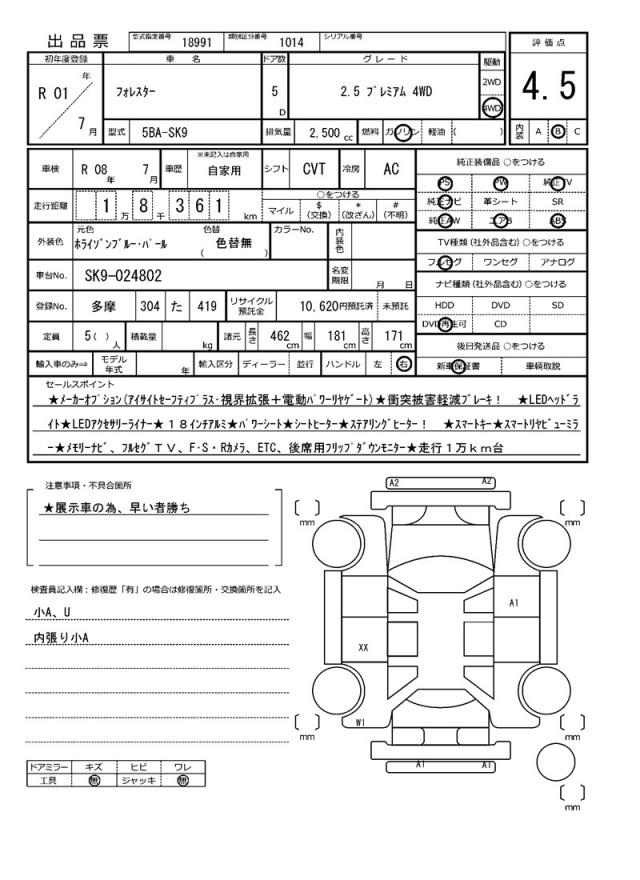 出品票
型式指定番号 18991 類別区分番号 1014 シリアル番号
初年度登録 車名 ドア数 グレード 駆動 評価点
R 01 年 7 月 フォレスター 5 D 2.5 プレミアム 4WD 2WD 4WD 4.5
型式 5BA-SK9 排気量 2,500 cc 燃料 ガソリン 軽油 ( ) 内装 A B C
車検 R 08 年 7 月 車歴 ※未記入は自家用 自家用 シフト CVT 冷房 AC
純正装備品 ○をつける
PS PW 純正TV
純正ナビ 革シート SR
純正AW エアB ABS
走行距離 1 万 8 千 3 6 1 km ○をつける マイル $ (交換) * (改ざん) # (不明)
TV種類 (社外品含む) ○をつける
フルセグ ワンセグ アナログ
外装色 元色 ホライゾンブルー・パール 色替 ( 色替無 ) カラーNo. 内装色
車台No. SK9-024802 名変期限 月 日
ナビ種類 (社外品含む) ○をつける
HDD DVD SD
DVD再生可 CD
登録No. 多摩 304 た 419 リサイクル預託金 10,620円預託済 未預託
定員 5( ) 人 積載量 kg 諸元 長さ 462 cm 幅 181 cm 高さ 171 cm
後日発送品 ○をつける
新車保証書 車輌取説
輸入車のみ⇒ モデル年式 年 輸入区分 ディーラー 並行 ハンドル 左 右
セールスポイント
★メーカーオプション(アイサイトセーフティプラス・視界拡張+電動パワーリヤゲート)★衝突被害軽減ブレーキ! ★LEDヘッドラ
イト★LEDアクセサリーライナー★18インチアルミ★パワーシート★シートヒーター★ステアリングヒーター! ★スマートキー★スマートリヤビューミラ
ー★メモリーナビ、フルセグTV、F・S・Rカメラ、ETC、後席用フリップダウンモニター★走行1万km台
注意事項・不具合箇所
★展示車の為、早い者勝ち
検査員記入欄:修復歴「有」の場合は修復箇所・交換箇所を記入
小A、U
内張り小A
ドアミラー キズ ヒビ ワレ
工具 無 ジャッキ 無
A2 A2
mm mm
A1
XX
W1
mm mm
A1 A1
mm